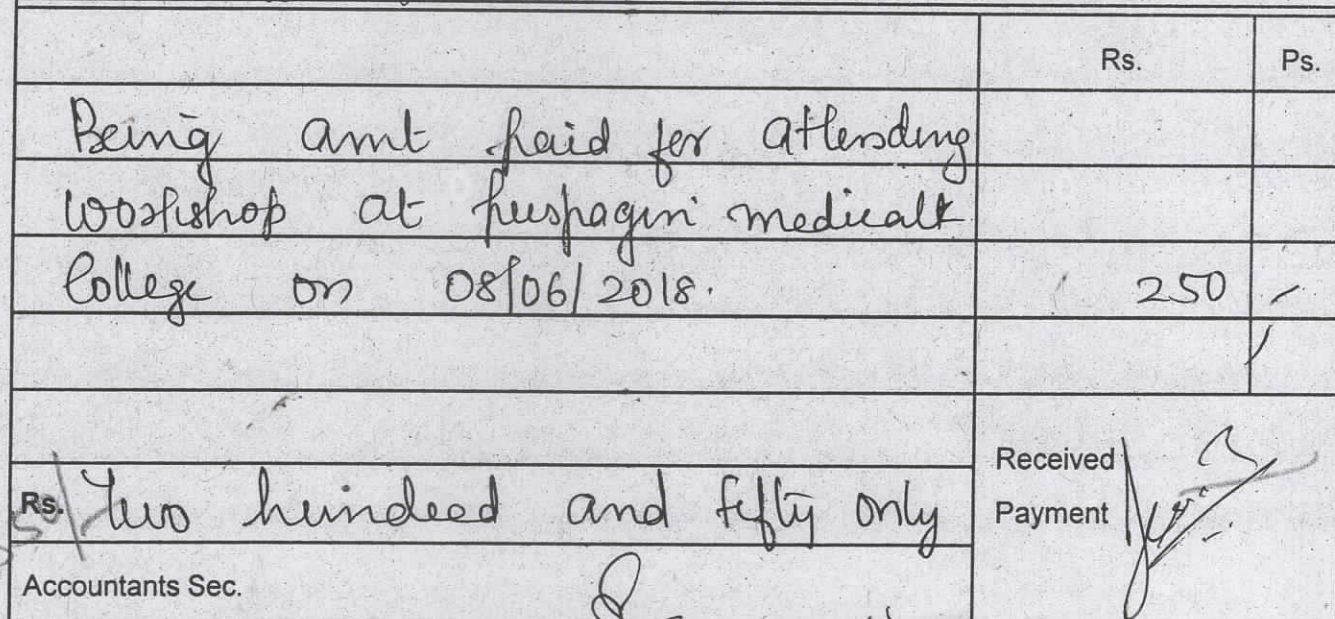 Rs. Ps.
Being amt paid for attending
workshop at puspagiri medicalk
College on 08/06/2018. 250 /
Rs. Two hundred and fifty only
Received
Payment
Accountants Sec.